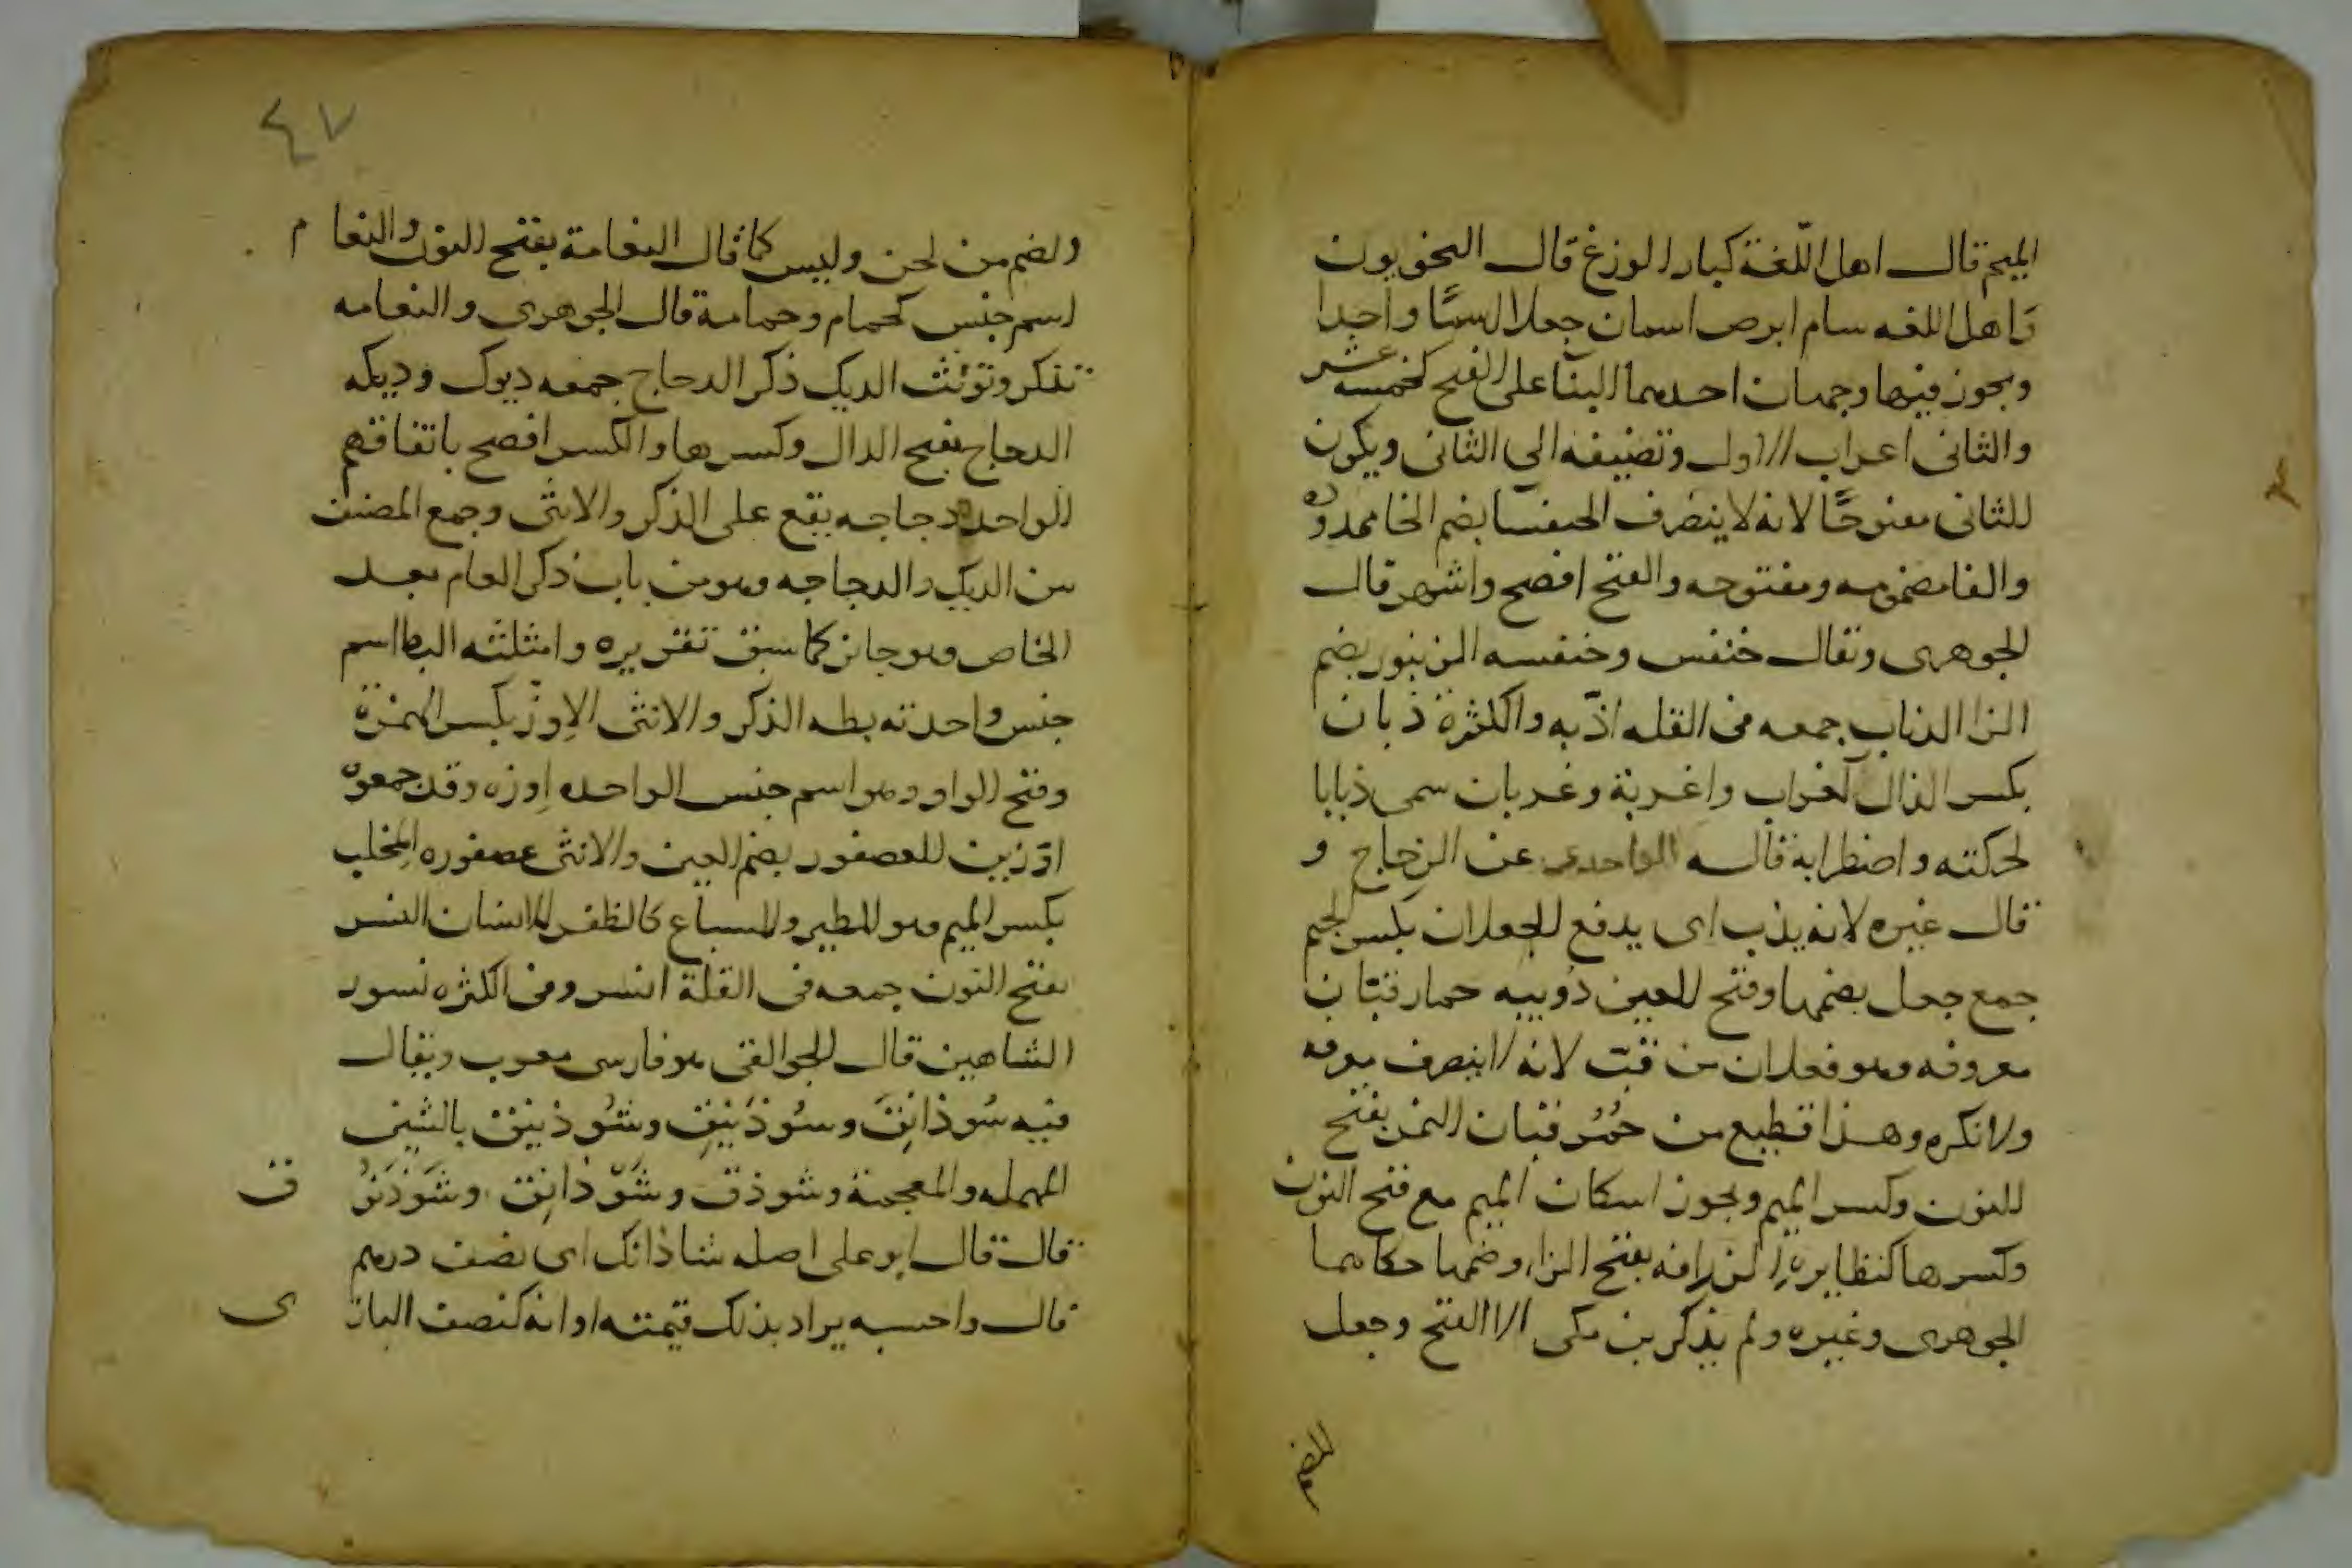 الميم قال اهل اللّغة كبار الوزغ قال النحويون
واهل اللغه سام ابرص اسمان جعلا اسمًا واحدا
ويجوز فيها وجهان احدهما البنا على الفتح كخمسه عشر
والثانى اعراب الاول وتضيفه الى الثانى ويكون
الثانى مفتوحًا لانه لا ينصرف الخنفسا بضم الخا ممدوده
والفا مضمومه ومفتوحه والفتح افصح واشهر قال
الجوهرى ويقال خنفس وخنفسه الزنبور بضم
الزا الذباب جمعه فى القله اذبّه والكثرة ذبان
بكسر الذال كغراب واغربة وغربان سمى ذبابا
لحركته واضطرابه قاله الواحدى عن الزجاج و
قال غيره لانه يذب اى يدفع الجعلان بكسر الجيم
جمع جعل بضمها وفتح العين دُويبه حمار قبّان
معروفه وهو فعلان من قبّ لانه لا ينصرف معرفه
ولا نكره وهذا قطيع من حُمُر قبان النمر بفتح
النون وكسر الميم ويجوز اسكان الميم مع فتح النون
وكسرها كنظايره الزرافه بفتح الزا وضمها حكاهما
الجوهرى وغيره ولم يذكر بن مكى الا الفتح وجعل
الضم
٤٧
والضم من لحن وليس كما قال النعامة بفتح النون والنعام
اسم جنس كحمام وحمامة قال الجوهرى والنعامه
تذكر وتؤنث الديك ذكر الدجاج جمعه ديوك وديكه
الدجاج بفتح الدال وكسرها والكسر افصح باتفاقهم
الواحد دجاجه يقع على الذكر والانثى وجمع المصنف
بين الديك والدجاجه وهو من باب ذكر العام بعد
الخاص وهو جائز كما سبق تقريره وامثلته البط اسم
جنس واحدته بطه الذكر والانثى الاِوزّ بكسر الهمزة
وفتح الواو وهو اسم جنس الواحده اِوزه وقد جمعوه
اوّزين العصفور بضم العين والانثى عصفوره المِخلب
بكسر الميم وهو للطير والسباع كالظفر للانسان النسر
بفتح النون جمعه فى القلة انسر وفى الكثره نسور
الشاهين قال الجواليقى هو فارسى معرب ويقال
فيه سُوذانِق وسُوذَنِيق وشُوذنيق بالشين
المهمله والمعجمة وشوذق وشَوّذانِق وشَوْذَنوُق
قال قال ابو على اصله شاذانك اى نصف درهم
قال واحسبه يراد بذلك قيمته او انه كنصف البازى